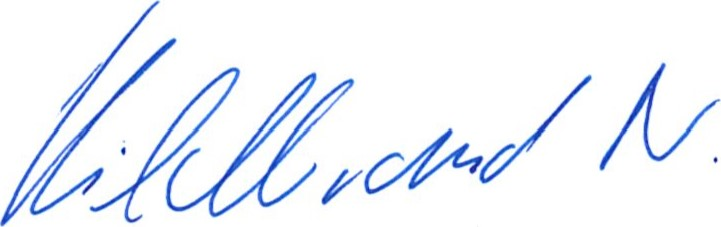 Hildbrand N.